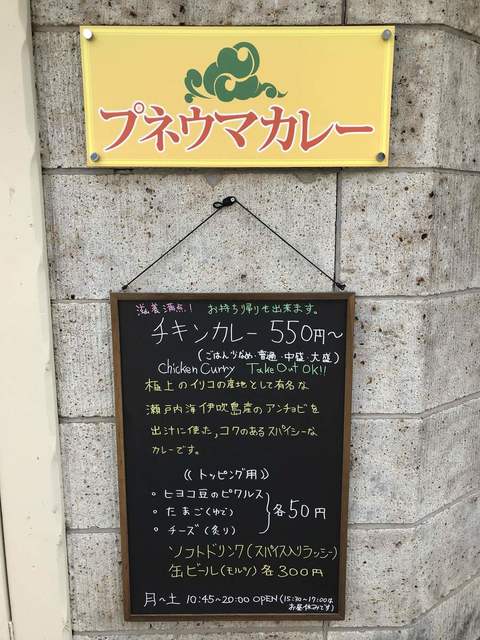 プネウマカレー
滋養満点! お持ち帰りも出来ます。
チキンカレー 550円〜
(ごはん少なめ・普通・中盛・大盛)
Chicken Curry Take Out OK!!
極上のイリコの産地として有名な
瀬戸内海伊吹島産のアンチョビを
出汁に使た,コクのあるスパイシーな
カレーです。
(( トッピング用 ))
。ヒヨコ豆のピクルス
。たまご(ゆで) 各50円
。チーズ(炙り)
ソフトドリンク(スパイス入りラッシー)
缶ビール(モルツ) 各300円
月〜土 10:45~20:00 OPEN (15:30~17:00は
お昼休みです)